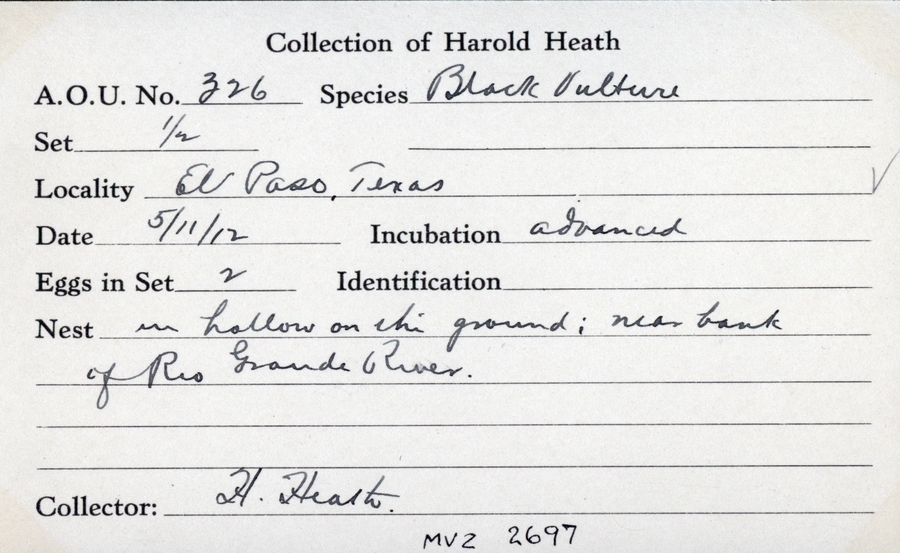 Collection of Harold Heath
A.O.U. No. 326 Species Black Vulture
Set 1/2
Locality El Paso, Texas
Date 5/11/12 Incubation advanced
Eggs in Set 2 Identification
Nest in hollow on the ground; near bank
of Rio Grande River.
Collector: H. Heath.
MVZ 2697